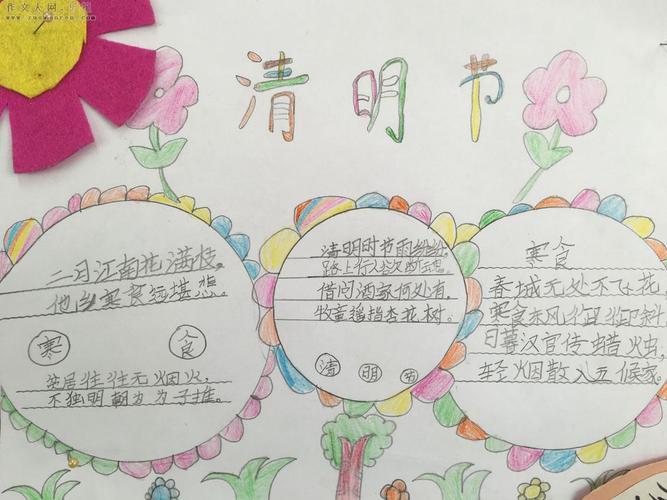 作文人网
清明节
二月江南花满枝,
他乡寒食远堪悲。
寒食
贫居往往无烟火,
不独明朝为子推。
清明时节雨纷纷,
路上行人欲断魂。
借问酒家何处有,
牧童遥指杏花树。
清明节
寒食
春城无处不飞花,
寒食东风御柳斜
日暮汉官传蜡虫,
轻烟散入五侯家。